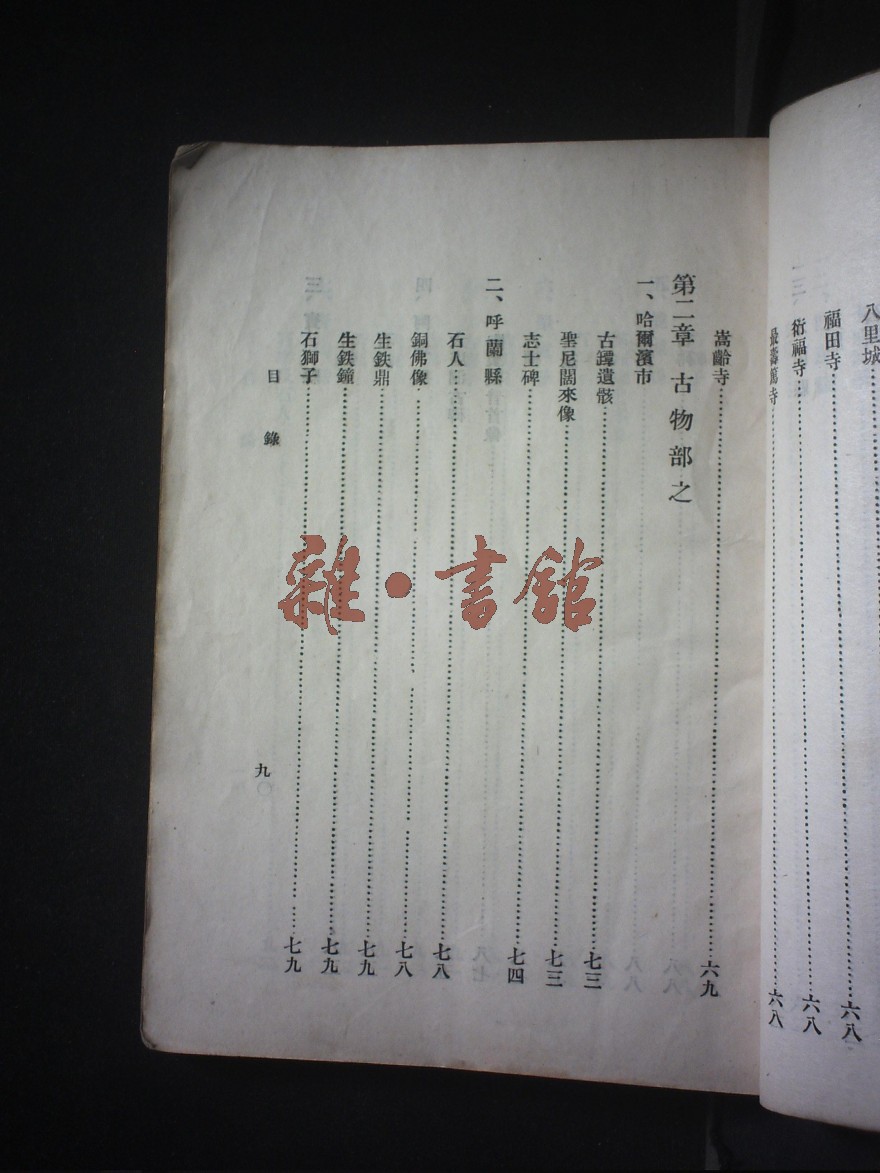 八里城
福田寺……六八
衍福寺……六八
最壽篤寺……六八
嵩齡寺……六九
第二章 古物部之
一、哈爾濱市
古罈遺骸……七三
聖尼闊來像……七三
志士碑……七四
二、呼蘭縣
石人……七八
銅佛像……七八
生鉄鼎……七九
生鉄鐘……七九
石獅子……七九
目 錄
九
雜·書館